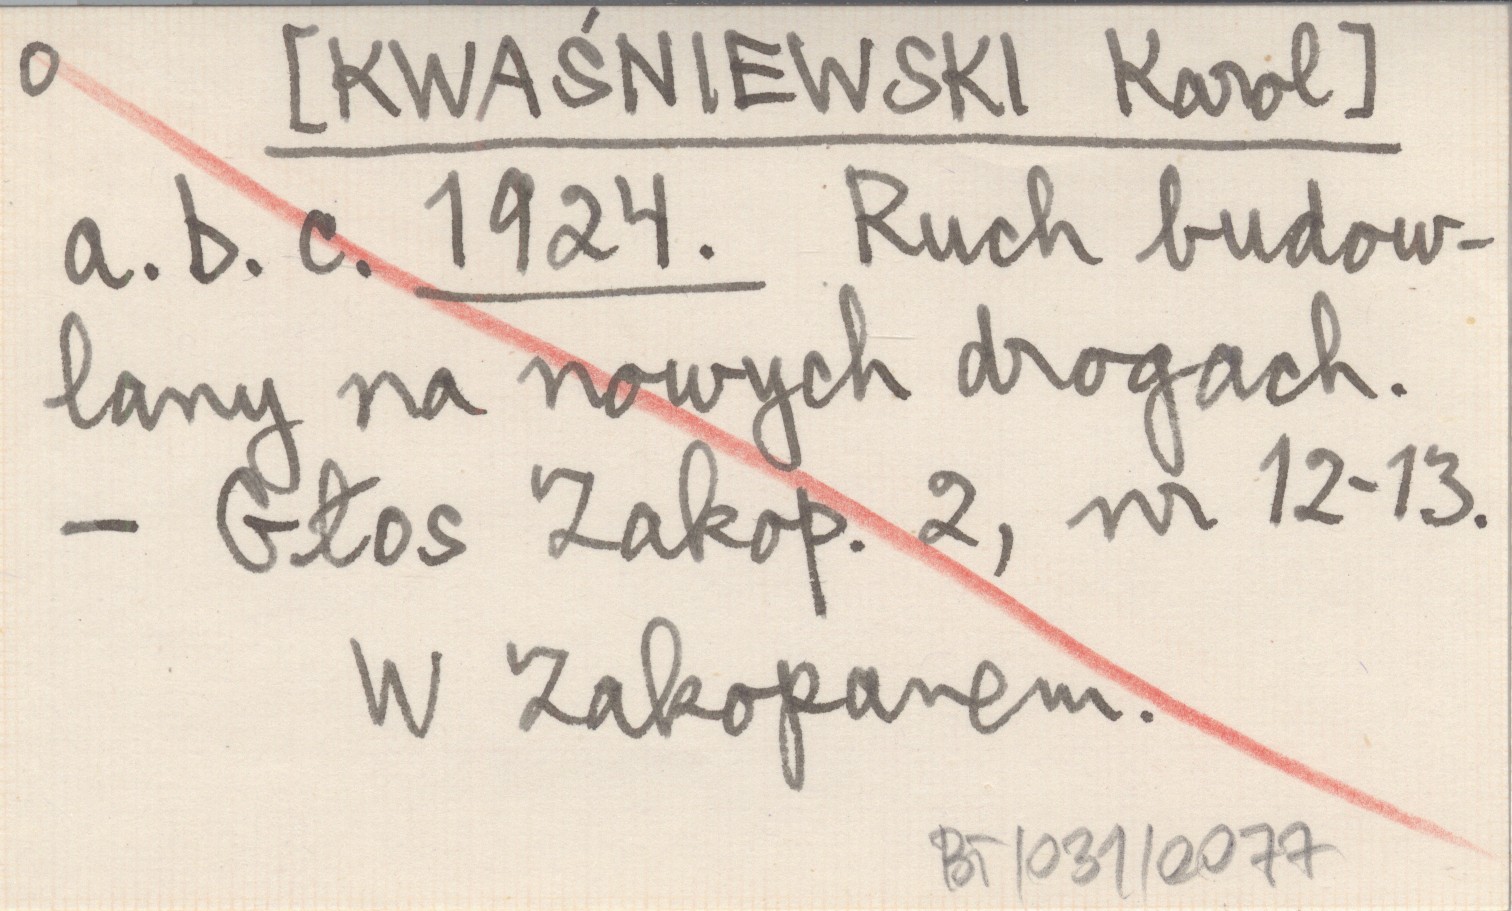 o [KWAŚNIEWSKI Karol]
a. b. c. 1924. Ruch budow-
lany na nowych drogach.
— Głos Zakop. 2, nr 12-13.
W Zakopanem.
BT/031/0077